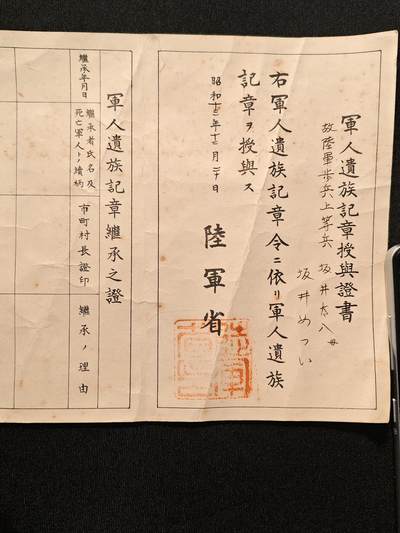 軍人遺族記章授與證書
故陸軍歩兵上等兵 坂井太八 母
坂井めつい
右軍人遺族記章令ニ依リ軍人遺族
記章ヲ授與ス
昭和十三年十二月二十日
陸軍省
軍人遺族記章繼承之證
繼承年月日
繼承者氏名及
死亡軍人トノ續柄
市町村長證印
繼承ノ理由